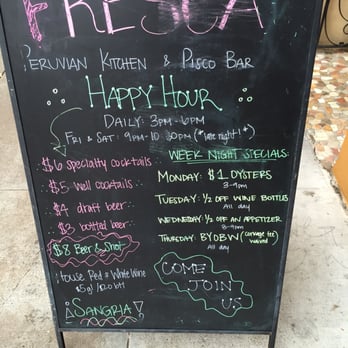 FRESCA
PERUVIAN KITCHEN & PISCO BAR
HAPPY HOUR
DAILY: 3PM-6PM
FRI & SAT: 9PM-10:30PM (*late night!*)
$6 specialty cocktails
$5 well cocktails
$4 draft beer
$3 bottled beer
$8 Beer & Shot
House Red or White Wine
¡SANGRIA!
WEEK NIGHT SPECIALS:
MONDAY: $1 OYSTERS
8-9pm
TUESDAY: ½ OFF WINE BOTTLES
All day
WEDNESDAY: ½ OFF AN APPETIZER
8-9pm
THURSDAY: BYOBW (corkage fee waived)
All day
COME
JOIN
US